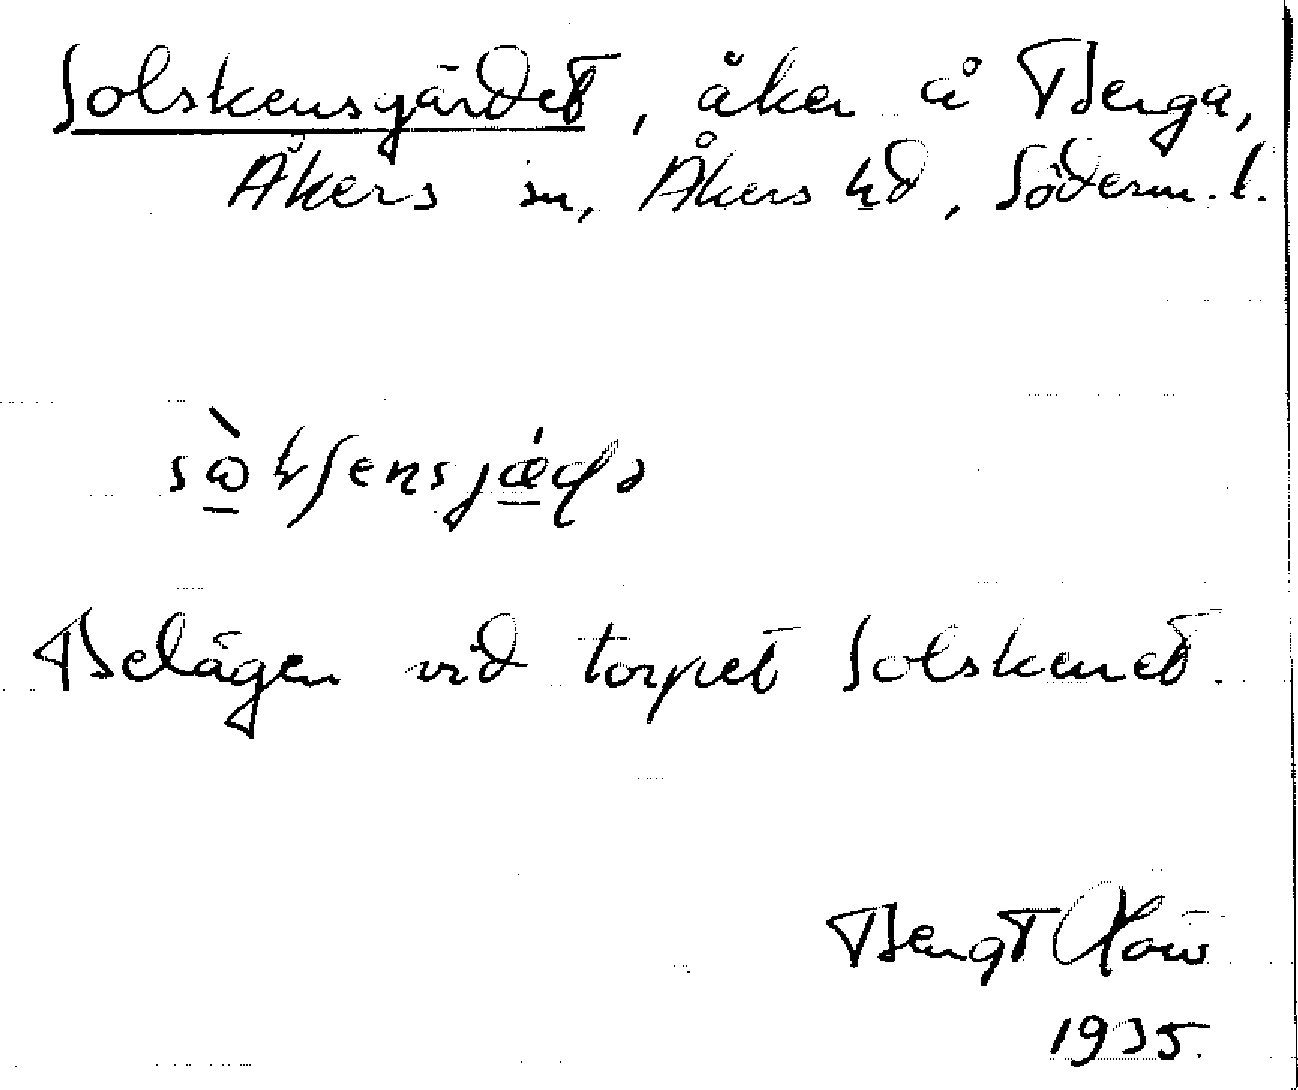 Solskensgärdet, åker å Berga,
Åkers sn, Åkers hd, Söderm. l.
Belägen vid torpet Solskenet.
Bengt
1935.